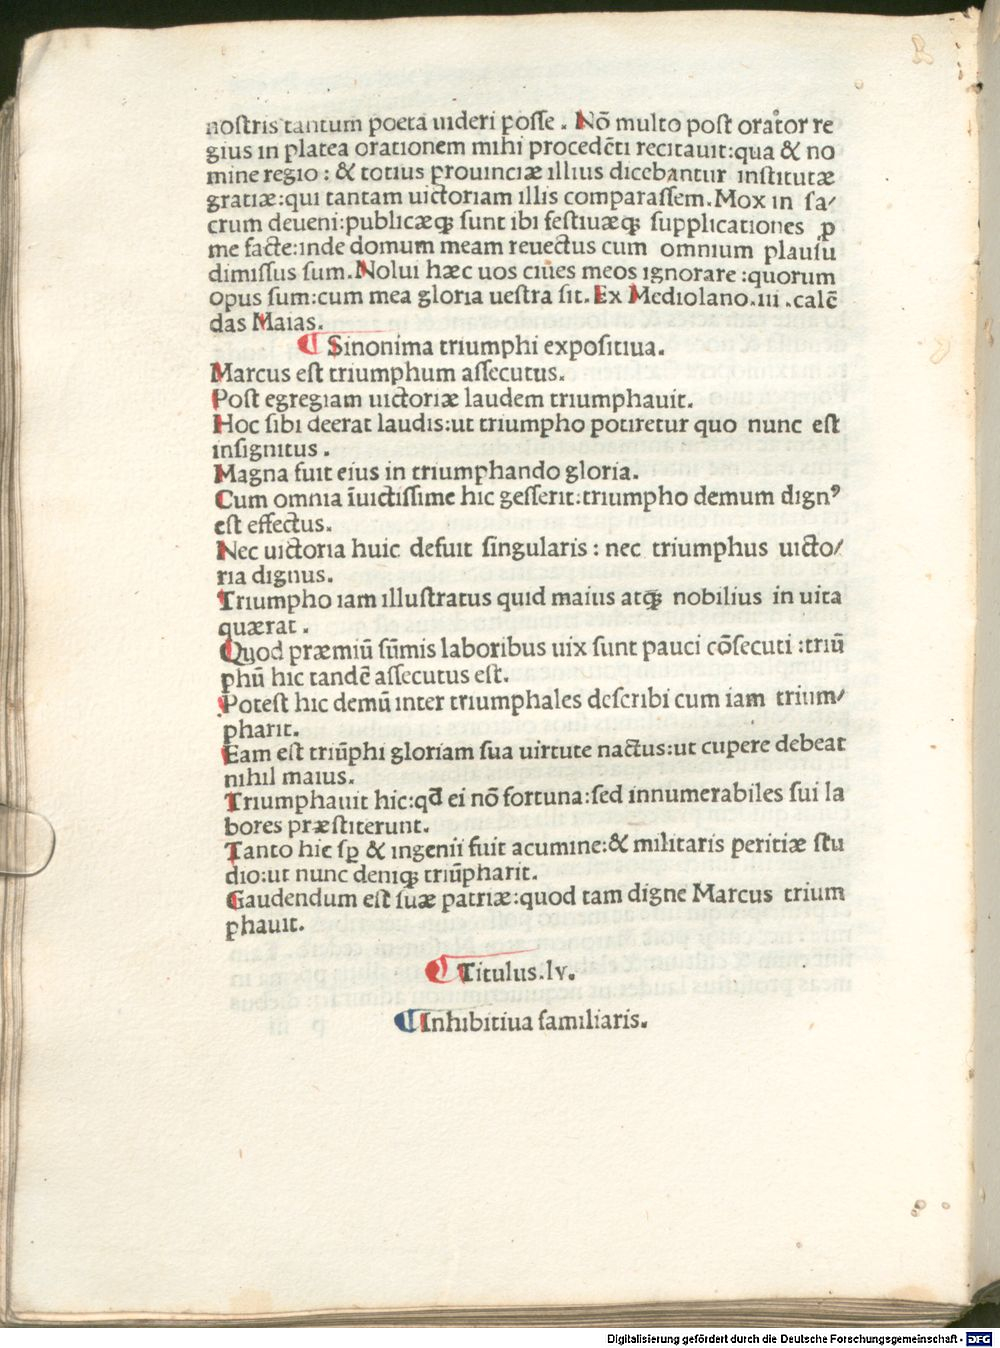 nostris tantum poeta uideri posse . Nō multo post orator re
gius in platea orationem mihi procedēti recitauit:qua & no
mine regio : & totius prouinciæ illius dicebantur institutæ
gratiæ:qui tantam uictoriam illis comparassem. Mox in sa/
crum deueni:publicæqꝫ sunt ibi festiuæqꝫ supplicationes ꝓ
me facte:inde domum meam reuectus cum omnium plausu
dimissus sum. Nolui hæc uos ciues meos ignorare :quorum
opus sum:cum mea gloria uestra sit. Ex Mediolano.iii .calē
das Maias.
⸿ Sinonima triumphi expositiua.
Marcus est triumphum assecutus.
Post egregiam uictoriæ laudem triumphauit.
Hoc sibi deerat laudis:ut triumpho potiretur quo nunc est
insignitus .
Magna fuit eius in triumphando gloria.
Cum omnia īuictissime hic gesserit:triumpho demum dignꝰ
est effectus.
Nec uictoria huic defuit singularis : nec triumphus uicto/
ria dignus.
Triumpho iam illustratus quid maius atqꝫ nobilius in uita
quærat .
Quod præmiū sūmis laboribus uix sunt pauci cōsecuti :triū
phū hic tandē assecutus est.
Potest hic demū inter triumphales describi cum iam trium/
pharit.
Eam est triūphi gloriam sua uirtute nactus:ut cupere debeat
nihil maius.
Triumphauit hic:qđ ei nō fortuna:sed innumerabiles sui la
bores præstiterunt.
Tanto hic sꝑ & ingenii fuit acumine:& militaris peritiæ stu
dio:ut nunc deniqꝫ triūpharit.
Gaudendum est suæ patriæ:quod tam digne Marcus trium
phauit.
⸿ Titulus.lv.
⸿ Inhibitiua familiaris.
Digitalisierung gefördert durch die Deutsche Forschungsgemeinschaft - DFG